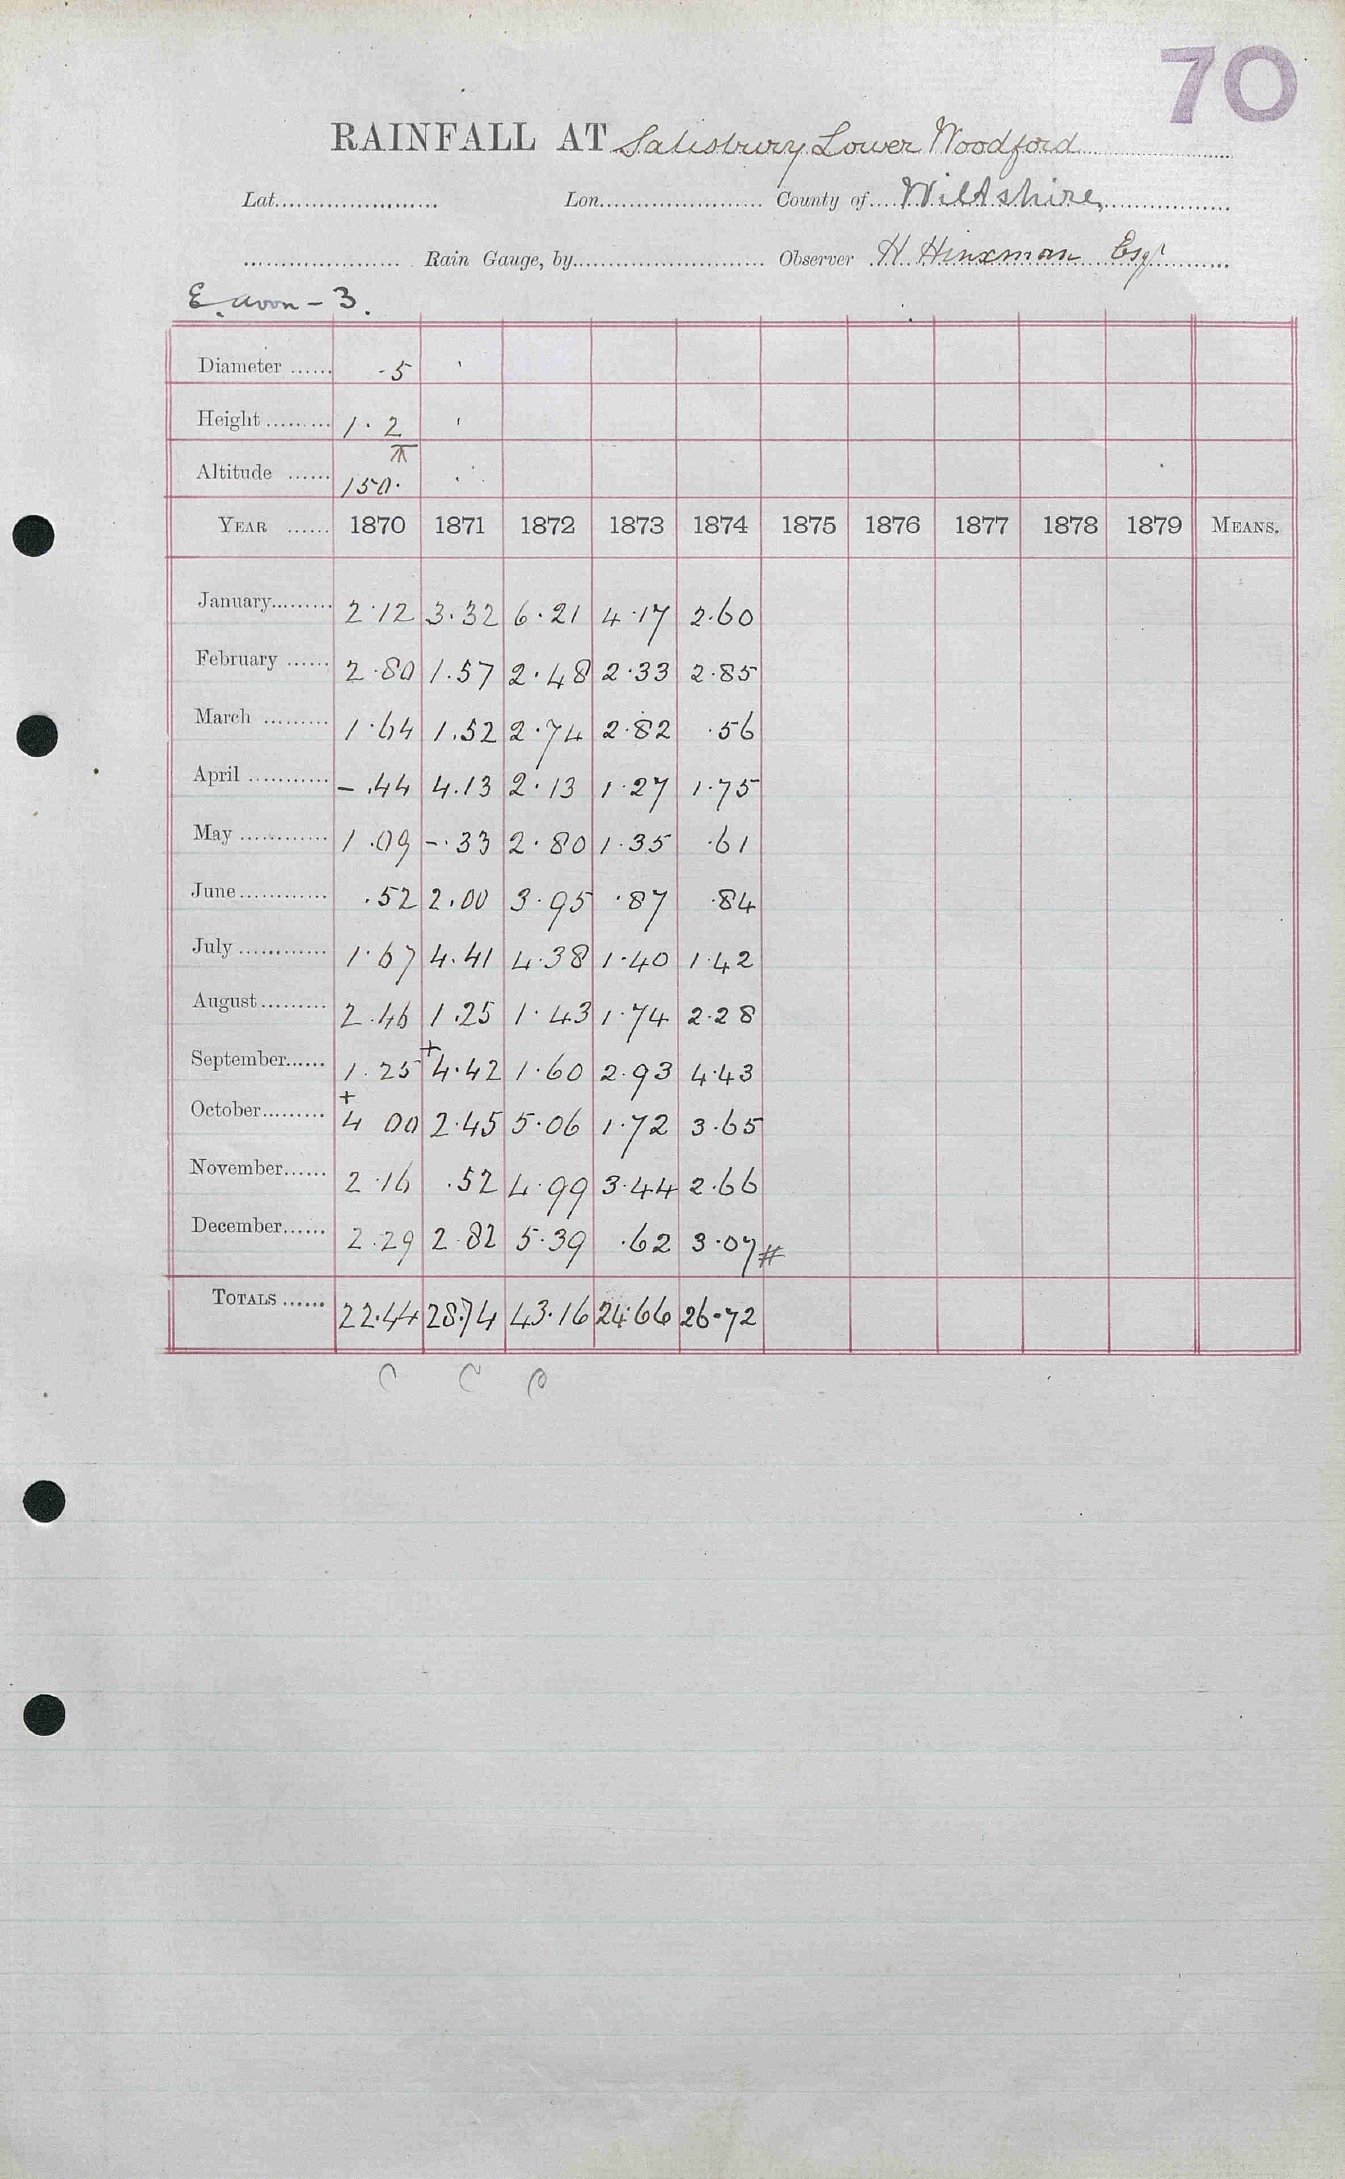 70
RAINFALL AT Salisbury Lower Woodford
Lat. Lon. County of Wiltshire
Rain Gauge, by Observer H Hinxman Esqr
E. Avon - 3.
Diameter 5
Height 1. 2
Altitude 150.
YEAR 1870 1871 1872 1873 1874 1875 1876 1877 1878 1879 MEANS.
January 2.12 3.32 6.21 4.17 2.60
February 2.80 1.57 2.48 2.33 2.85
March 1.64 1.52 2.74 2.82 .56
April - .44 4.13 2.13 1.27 1.75
May 1.09 - .33 2.80 1.35 .61
June .52 2.00 3.95 .87 .84
July 1.67 4.41 4.38 1.40 1.42
August 2.46 1.25 1.43 1.74 2.28
September 1.25 +4.42 1.60 2.93 4.43
October +4 00 2.45 5.06 1.72 3.65
November 2.16 .52 4.99 3.44 2.66
December 2.29 2.82 5.39 .62 3.07#
TOTALS 22.44 28.74 43.16 24.66 26.72